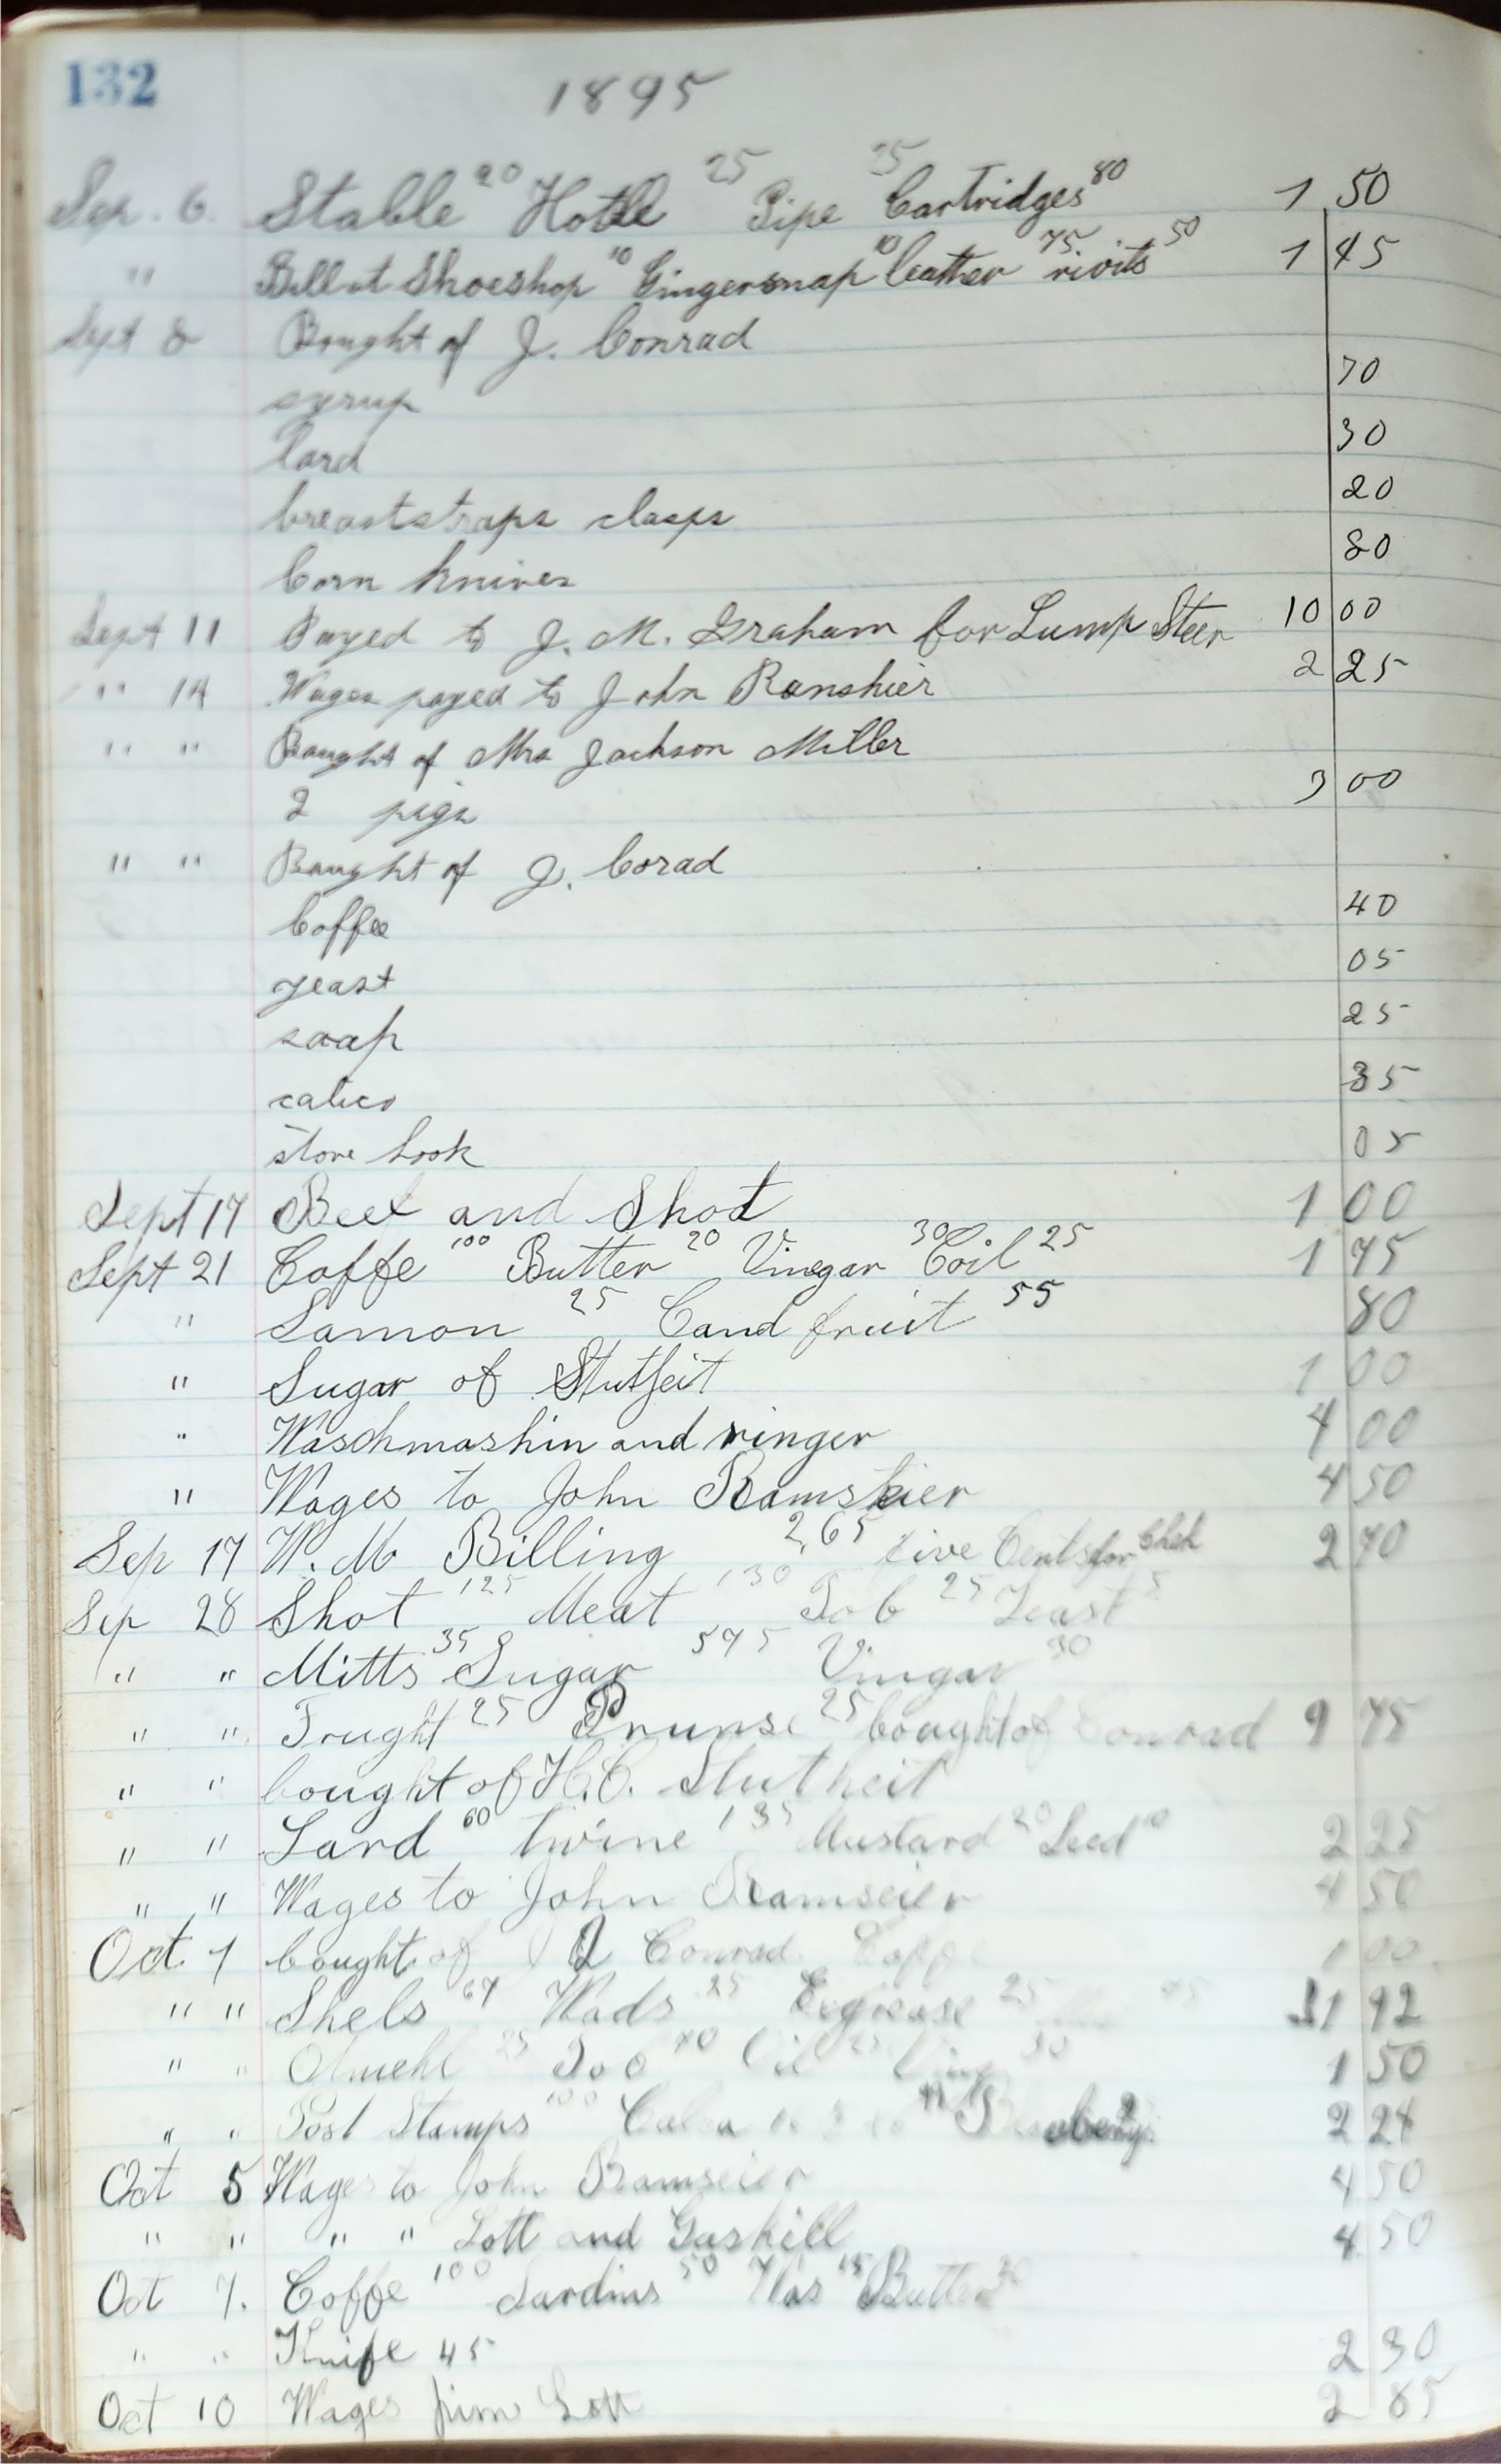 132
1895
Sep. 6. Stable 20 Hotle 25 Pipe 25 Cartridges 80 1 50
" Bill at Shoeshop 10 Gingersnap 10 leather 75 rivits 50 1 45
Sept 8 Bought of J. Conrad
syrup 70
lard 30
breaststraps clasps 20
Corn knives 80
Sept 11 Payed to J. M. Graham for Lump Steer 10 00
" 14 Wages payed to John Ranshier 2 25
" " Baught of Mrs Jackson Miller
2 pigs 3 00
" " Baught of J. Corad
Coffee 40
yeast 05
soap 25
calico 35
stove hook 05
Sept 17 Beef and Shot 1 00
Sept 21 Coffe 100 Butter 20 Vinegar 30 Coil 25 1 75
" Samon 25 Cand fruit 55 80
" Sugar of Stutheit 1 00
" Waschmashin and ringer 4 00
" Wages to John Ramseier 4 50
Sep 17 W. M Billing 2,65 five Cents for 2 70
Sep 28 Shot 125 Meat 130 Tob 25 Yeast 5
" " Mitts 35 Sugar 575 Vinegar 30
" " Frught 25 Prunse 25 bought of Conrad 9 75
" " bought of H.C. Stutheit
" " Lard 60 twine 135 Mustard 20 Seed 10 2 25
" " Wages to John Ramseier 4 50
Oct. 1 bought of J Conrad Coffe 1 00
" " Shels 67 Wads 25 25 1 92
" " 25 Tob 70 Oil 25 30 1 50
" " Post Stamps 100 2 28
Oct 5 Wages to John Ramseier 4 50
" " " " Lott and Gaskill 4 50
Oct 7. Coffe 100 Sardins 50 15 Butter 30
" " Knife 45 2 30
Oct 10 Wages Lott 2 85